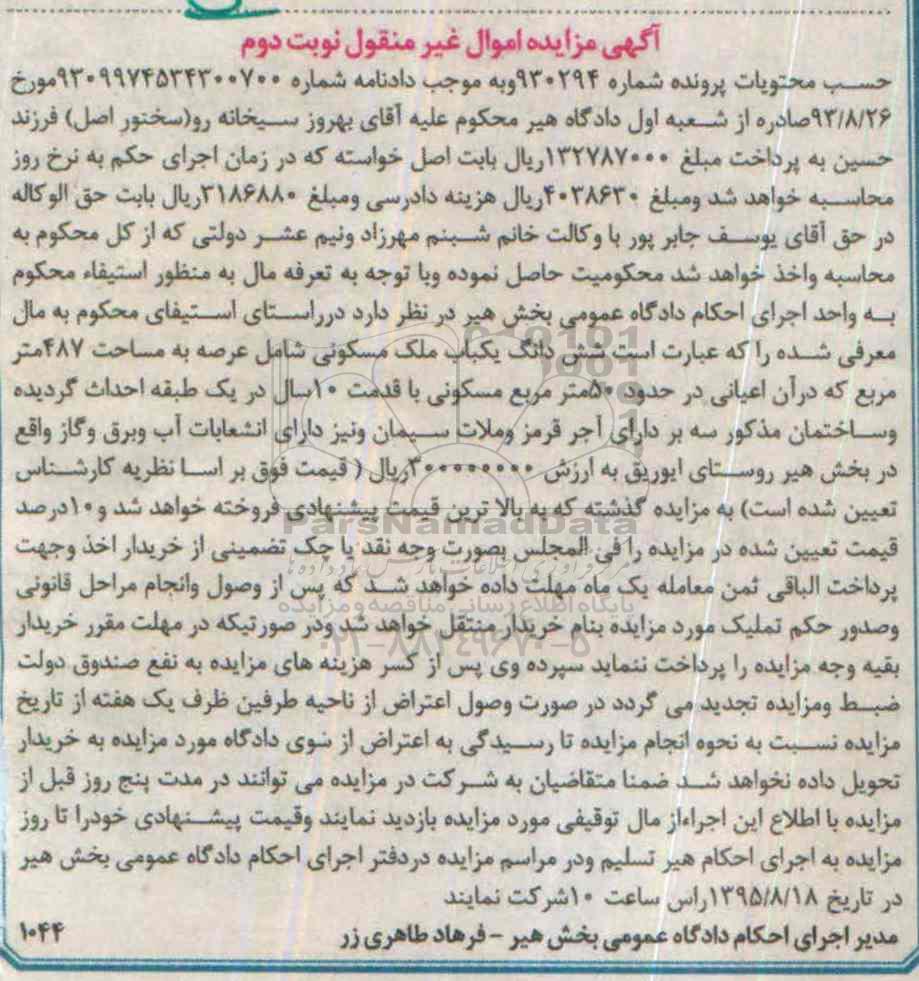 آگهی مزایده اموال غیر منقول نوبت دوم
حسب محتویات پرونده شماره ۹۳۰۲۹۴وبه موجب دادنامه شماره ۹۳۰۹۹۷۴۵۳۴۳۰۰۷۰۰مورخ
۹۳/۸/۲۶صادره از شعبه اول دادگاه هیر محکوم علیه آقای بهروز سیخانه رو(سختور اصل) فرزند
حسین به پرداخت مبلغ ۱۳۲۷۸۷۰۰۰ریال بابت اصل خواسته که در زمان اجرای حکم به نرخ روز
محاسبه خواهد شد ومبلغ ۴۰۳۸۶۳۰ریال هزینه دادرسی ومبلغ ۳۱۸۶۸۸۰ریال بابت حق الوکاله
در حق آقای یوسف جابر پور با وکالت خانم شبنم مهرزاد ونیم عشر دولتی که از کل محکوم به
محاسبه واخذ خواهد شد محکومیت حاصل نموده وبا توجه به تعرفه مال به منظور استیفاء محکوم
به واحد اجرای احکام دادگاه عمومی بخش هیر در نظر دارد درراستای استیفای محکوم به مال
معرفی شده را که عبارت است شش دانگ یکباب ملک مسکونی شامل عرصه به مساحت ۴۸۷متر
مربع که درآن اعیانی در حدود ۵۰متر مربع مسکونی با قدمت ۱۰سال در یک طبقه احداث گردیده
وساختمان مذکور سه بر دارای آجر قرمز وملات سیمان ونیز دارای انشعابات آب وبرق وگاز واقع
در بخش هیر روستای ایوریق به ارزش ۳۰۰۰۰۰۰۰۰ریال ( قیمت فوق بر اسا نظریه کارشناس
تعیین شده است) به مزایده گذشته که به بالا ترین قیمت پیشنهادی فروخته خواهد شد و۱۰درصد
ParsNamadData
قیمت تعیین شده در مزایده را فی المجلس بصورت وجه نقد یا چک تضمینی از خریدار اخذ وجهت
پرداخت الباقی ثمن معامله یک ماه مهلت داده خواهد شد که پس از وصول وانجام مراحل قانونی
پایگاه اطلاع رسانی مناقصه و مزایده
وصدور حکم تملیک مورد مزایده بنام خریدار منتقل خواهد شد ودر صورتیکه در مهلت مقرر خریدار
۰۲۱-۸۸۳۴۹۶۷۰-۵
بقیه وجه مزایده را پرداخت ننماید سپرده وی پس از کسر هزینه های مزایده به نفع صندوق دولت
ضبط ومزایده تجدید می گردد در صورت وصول اعتراض از ناحیه طرفین ظرف یک هفته از تاریخ
مزایده نسبت به نحوه انجام مزایده تا رسیدگی به اعتراض از سوی دادگاه مورد مزایده به خریدار
تحویل داده نخواهد شد ضمنا متقاضیان به شرکت در مزایده می توانند در مدت پنج روز قبل از
مزایده با اطلاع این اجراءاز مال توقیفی مورد مزایده بازدید نمایند وقیمت پیشنهادی خودرا تا روز
مزایده به اجرای احکام هیر تسلیم ودر مراسم مزایده دردفتر اجرای احکام دادگاه عمومی بخش هیر
در تاریخ ۱۳۹۵/۸/۱۸راس ساعت ۱۰شرکت نمایند
مدیر اجرای احکام دادگاه عمومی بخش هیر - فرهاد طاهری زر
۱۰۴۴